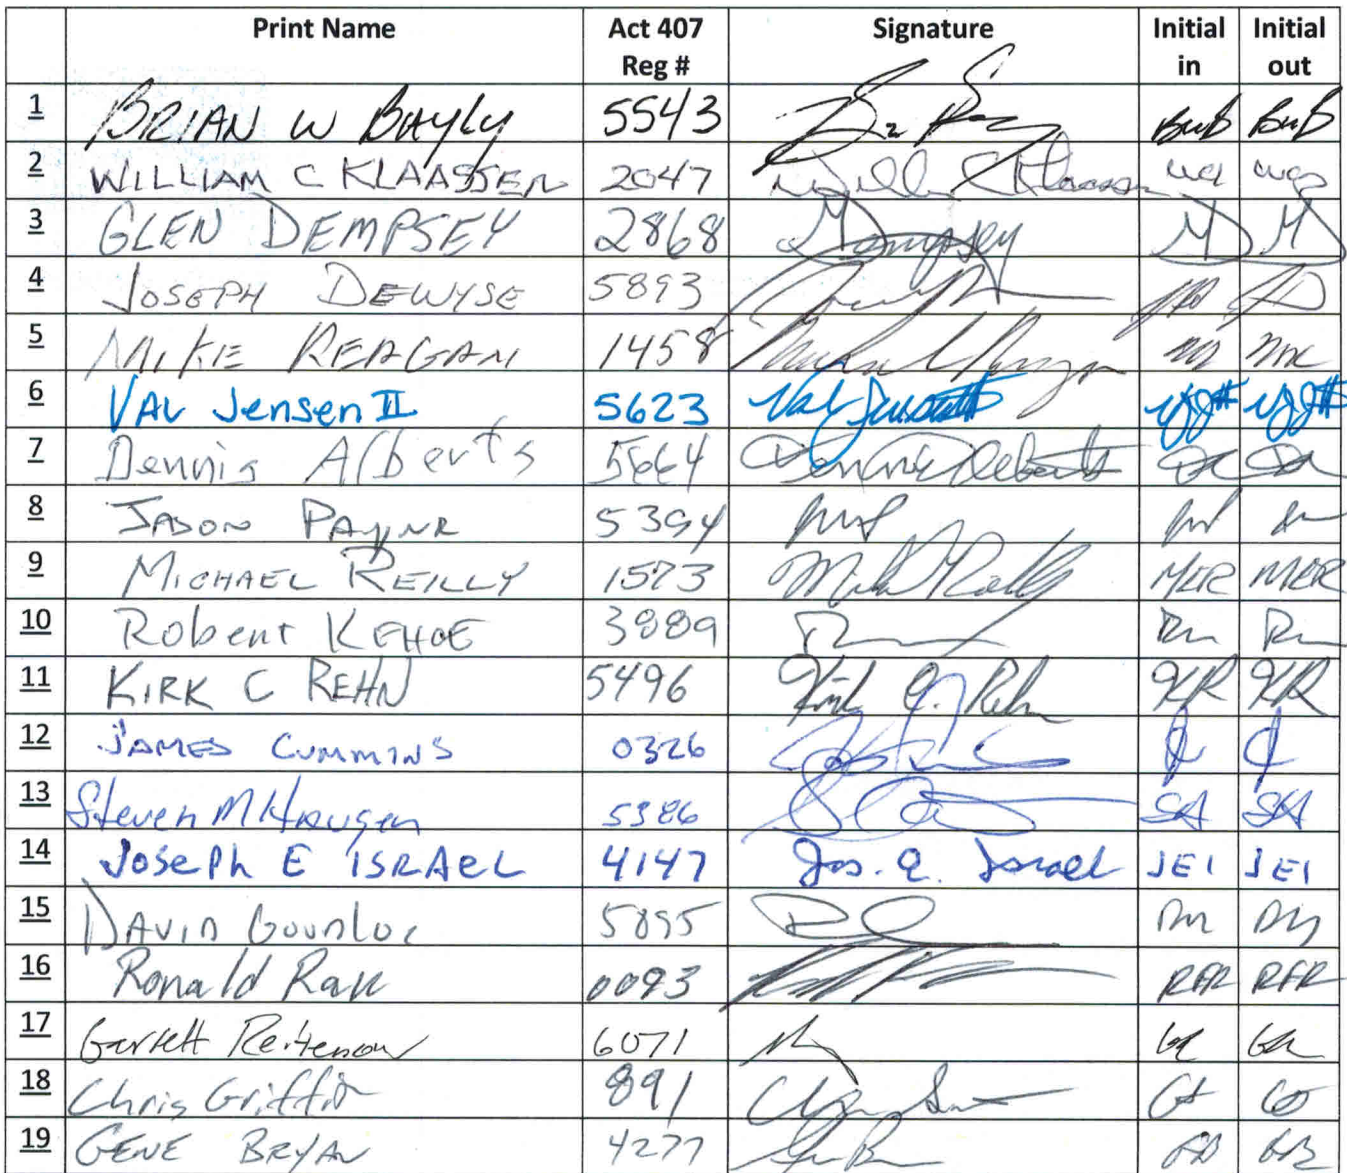 Print Name Act 407 Reg # Signature Initial in Initial out
1 BRIAN W BAYLY 5543 BWB BWB
2 WILLIAM C KLAASSEN 2047 Willi C Klaassen
3 GLEN DEMPSEY 2868 Dempsey
4 JOSEPH DEWYSE 5893 JD
5 MIKE REAGAN 1458
6 VAL Jensen II 5623 Val
7 Dennis Alberts 5664 Dennis Alberts
8 JASON PAYNE 5394
9 MICHAEL REILLY 1573 MER MER
10 Robert KEHOE 3889
11 KIRK C REHN 5496 Kirk C. Rehn KR KR
12 JAMES CUMMINS 0326
13 Steven M Haugen 5386 SH
14 JosePh E ISRAEL 4147 Jos. E. Israel JEI JEI
15 DAVID 5895
16 Ronald Rak 0093 RFR RFR
17 Garrett 6071
18 Chris Griffin 891
19 GENE BRYAN 4277 GB GB